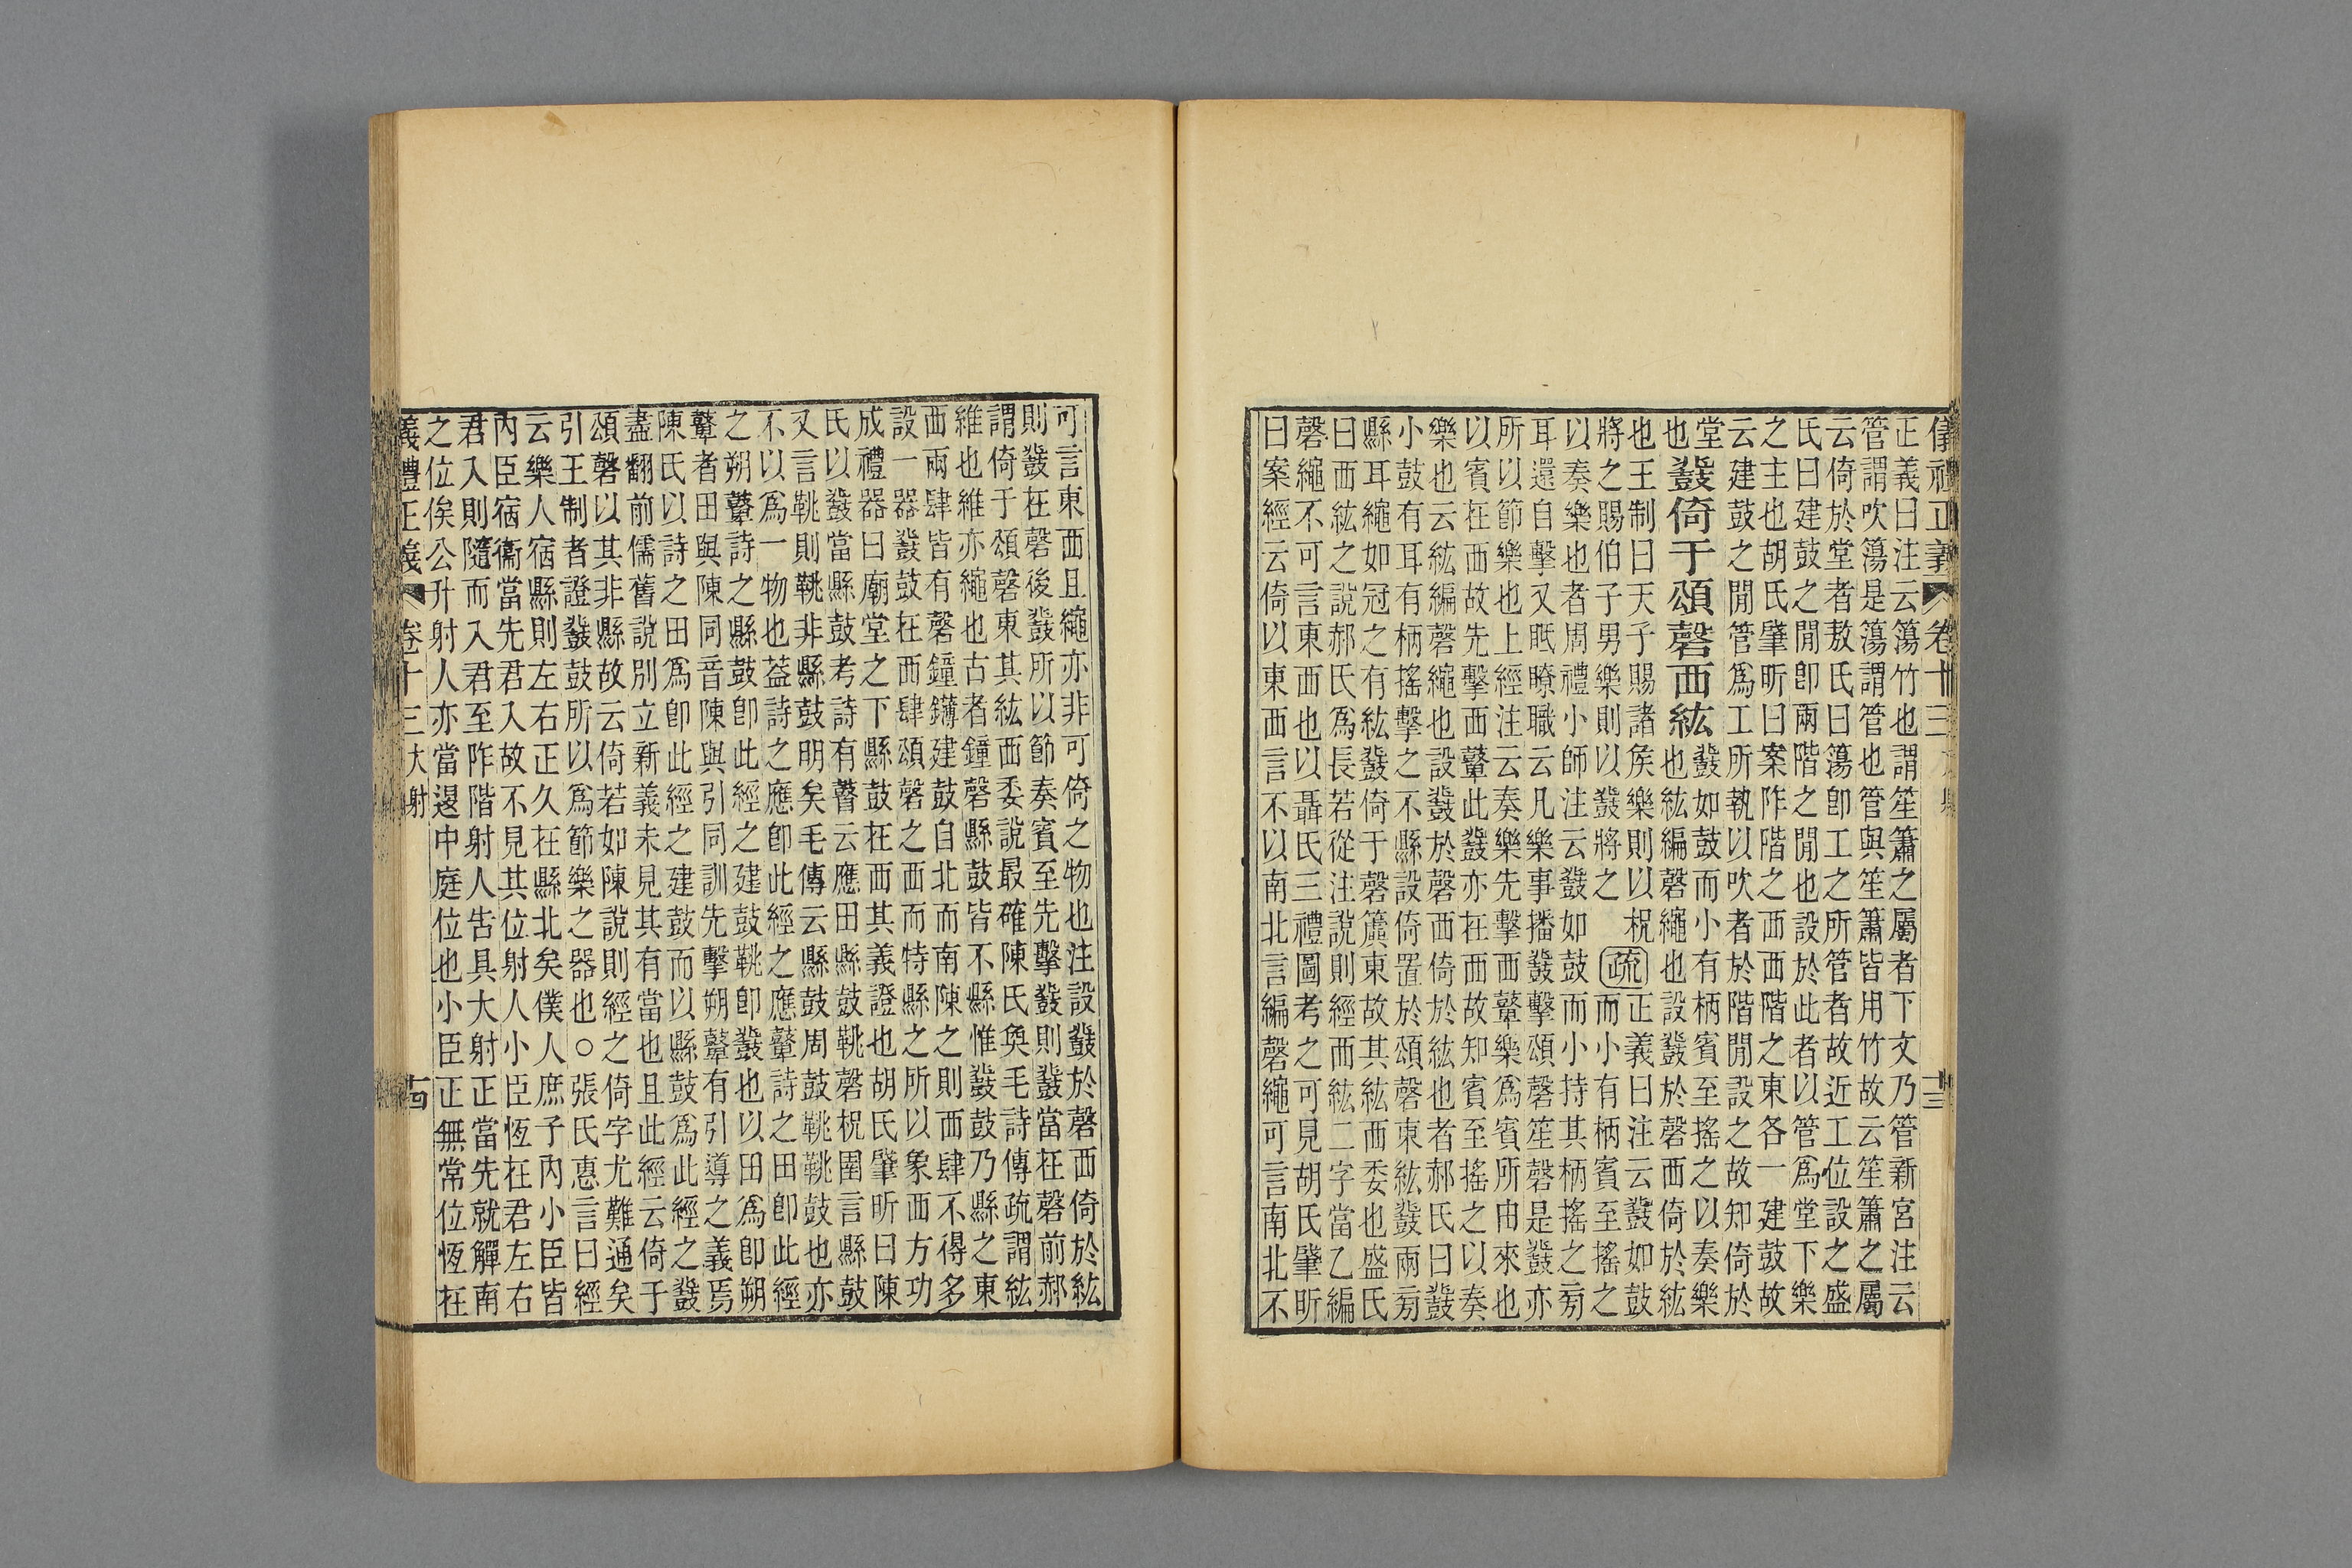 儀禮正義 卷十三 十三
正義曰注云簜竹也謂笙簫之屬者下文乃管新宮注云
管謂吹簜是簜謂管也管與笙簫皆用竹故云笙簫之屬
云倚於堂者敖氏曰簜卽工之所管者故近工位設之盛
氏曰建鼓之閒卽兩階之閒也設於此者以管爲堂下樂
之主也胡氏肇昕曰案阼階之西西階之東各一建鼓故
云建鼓之閒管爲工所執以吹者於階閒設之故知倚於
堂
也
鼗倚于頌磬西紘
鼗如鼓而小有柄賓至搖之以奏樂
也紘編磬繩也設鼗於磬西倚於紘
也王制曰天子賜諸矦樂則以柷
將之賜伯子男樂則以鼗將之
疏
正義曰注云鼗如鼓
而小有柄賓至搖之
以奏樂也者周禮小師注云鼗如鼓而小持其柄搖之旁
耳還自擊又眡瞭職云凡樂事播鼗擊頌磬笙磬是鼗亦
所以節樂也上經注云奏樂先擊西鼙樂爲賓所由來也
以賓在西故先擊西鼙此鼗亦在西故知賓至搖之以奏
樂也云紘編磬繩也設鼗於磬西倚於紘也者郝氏曰鼗
小鼓有耳有柄搖擊之不縣設倚置於頌磬東紘鼗兩旁
縣耳繩如冠之有紘鼗倚于磬簴東故其紘西委也盛氏
曰而紘之說郝氏爲長若從注說則經而紘二字當乙編
磬繩不可言東西也以聶氏三禮圖考之可見胡氏肇昕
曰案經云倚以東西言不以南北言編磬繩可言南北不
可言東西且繩亦非可倚之物也注設鼗於磬西倚於紘
則鼗在磬後鼗所以節奏賓至先擊鼗則鼗當在磬前郝
謂倚于頌磬東其紘西委說最確陳氏奐毛詩傳疏謂紘
維也維亦繩也古者鐘磬縣鼓皆不縣惟鼗鼓乃縣之東
西兩肆皆有磬鐘鑮建鼓自北而南陳之則西肆不得多
設一器鼗鼓在西肆頌磬之西而特縣之所以象西方功
成禮器曰廟堂之下縣鼓在西其義證也胡氏肇昕曰陳
氏以鼗當縣鼓考詩有瞽云應田縣鼓鞉磬柷圉言縣鼓
又言鞉則鞉非縣鼓明矣毛傳云縣鼓周鼓鞉鞉鼓也亦
不以爲一物也葢詩之應卽此經之應鼙詩之田卽此經
之朔鼙詩之縣鼓卽此經之建鼓鞉卽鼗也以田爲卽朔
鼙者田與陳同音陳與引同訓先擊朔鼙有引導之義焉
陳氏以詩之田爲卽此經之建鼓而以縣鼓爲此經之鼗
盡翻前儒舊說別立新義未見其有當也且此經云倚于
頌磬以其非縣故云倚若如陳說則經之倚字尤難通矣
引王制者證鼗鼓所以爲節樂之器也○張氏惠言曰經
云樂人宿縣則左右正久在縣北矣僕人庶子內小臣皆
內臣宿衞當先君入故不見其位射人小臣恆在君左右
君入則隨而入君至阼階射人告具大射正當先就觶南
之位俟公升射人亦當退中庭位也小臣正無常位恆在
義禮正義 卷十三 大射 十四